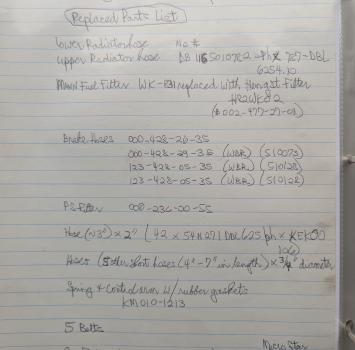 Replaced Parts List
lower Radiator hose No #
upper Radiator hose DB 115 501 0782 Phx 7E7-DBL
6254.10
Main Fuel Filter WK-831 replaced with Hengst Filter
H22WK02
(# 002-477-27-01)
Brake Hoses 000-428-26-35
000-428-29-35 (WBR) (512073)
123-428-05-35 (WBR) (510128)
123-428-05-35 (WBR) (510128)
000-236-00-55
Hose (~3") x 2" [42 x 54 M 271 DBL 625 ph x KEK90
Hoses (5 other short hoses (4"-7" in length) x 3/4" diameter
Spring & Control arm w/ rubber gaskets
KM010-1213
5 Belts